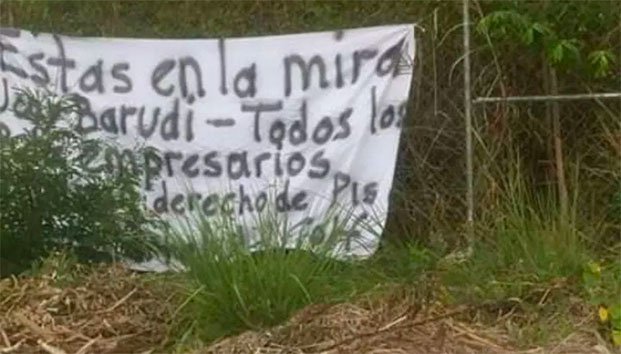 Estas en la mira
Barudi - Todos los
empresarios
derecho de Pis